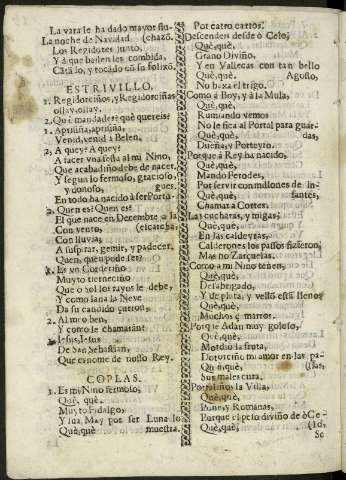 La vara le ha dado mayor
La noche de Navidad (chazo,
Los Regidores junto,
Y à que bailen les combida,
ESTRIVILLO.
1. Regidorciños, y Regidorciñas
ollay, ollay.
2. Què mandades? què quereis?
1. Apriesa, apriesa
Venid, venid à Belen.
2. A quey? A quey?
A facer una festa al mi Nino,
Que acabadiño debe de nacer,
Y segun lo fermoso, gracioso,
y donoso, gues.
En todo ha nacido à ser Portu-
2. Quen es? Quen es?
El que nace en Decembre a la
Con vento, (escarcha,
Con lluvias
A suspirar, gemir, y padecer.
Quen, quen pode ser?
1. Es un Corderiño
Muyto tierneciño
Que ò sol los rayos le debe,
Y como lana la Neve
Da su candido
2. Al mio ben,
Y como le chamaràn?
1. Jesus, Jesus
De San Sebastian,
Que es nome de nosso Rey.
COPLAS.
1. Es mi Nino fermoso,
Què, què,
Muyto Fidalgo,
Y sua May por ser Luna lo
Què, què muestra.
Por catro carros.
Descenden desde ò Celo,
Què, què,
Grano Diviño,
Y en Vallecas con tan bello
Què, què, Agosto,
No baxa el trigo.
Como à Boy, y à la Mula,
Què, què,
Rumiando vemos
No se fia al Portal para guar-
Què, què, das,
Dueñe, y Porteyro.
Porque à Rey ha nacido,
Què, què,
Mando Perodes,
Por servir con millones de In-
Què, què, fantes,
Chamar à Cortes.
Las cucharas, y migas,
Què, què,
En las caldeyras,
Calderones los passos fizeron,
Mas no Zarzuelas.
Como a mi Nino tenen,
Què, què,
Desabrigado,
Y de plata, y vello està lleno
Què, què,
Muchos marros.
Porque Adan muy goloso,
Què, què,
Mordiò la fruta,
mi amor en las pa-
Què, què, (jas,
Sus
Portaliños la Villa,
Què, què,
Pone, y Romanas,
Porque el peso diviño de ò Ce-
Què, què, (lo,
Se